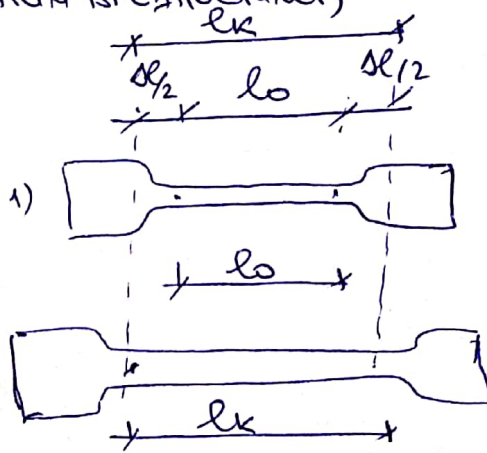 lk
Δl/2 l0 Δl/2
1)
l0
lk